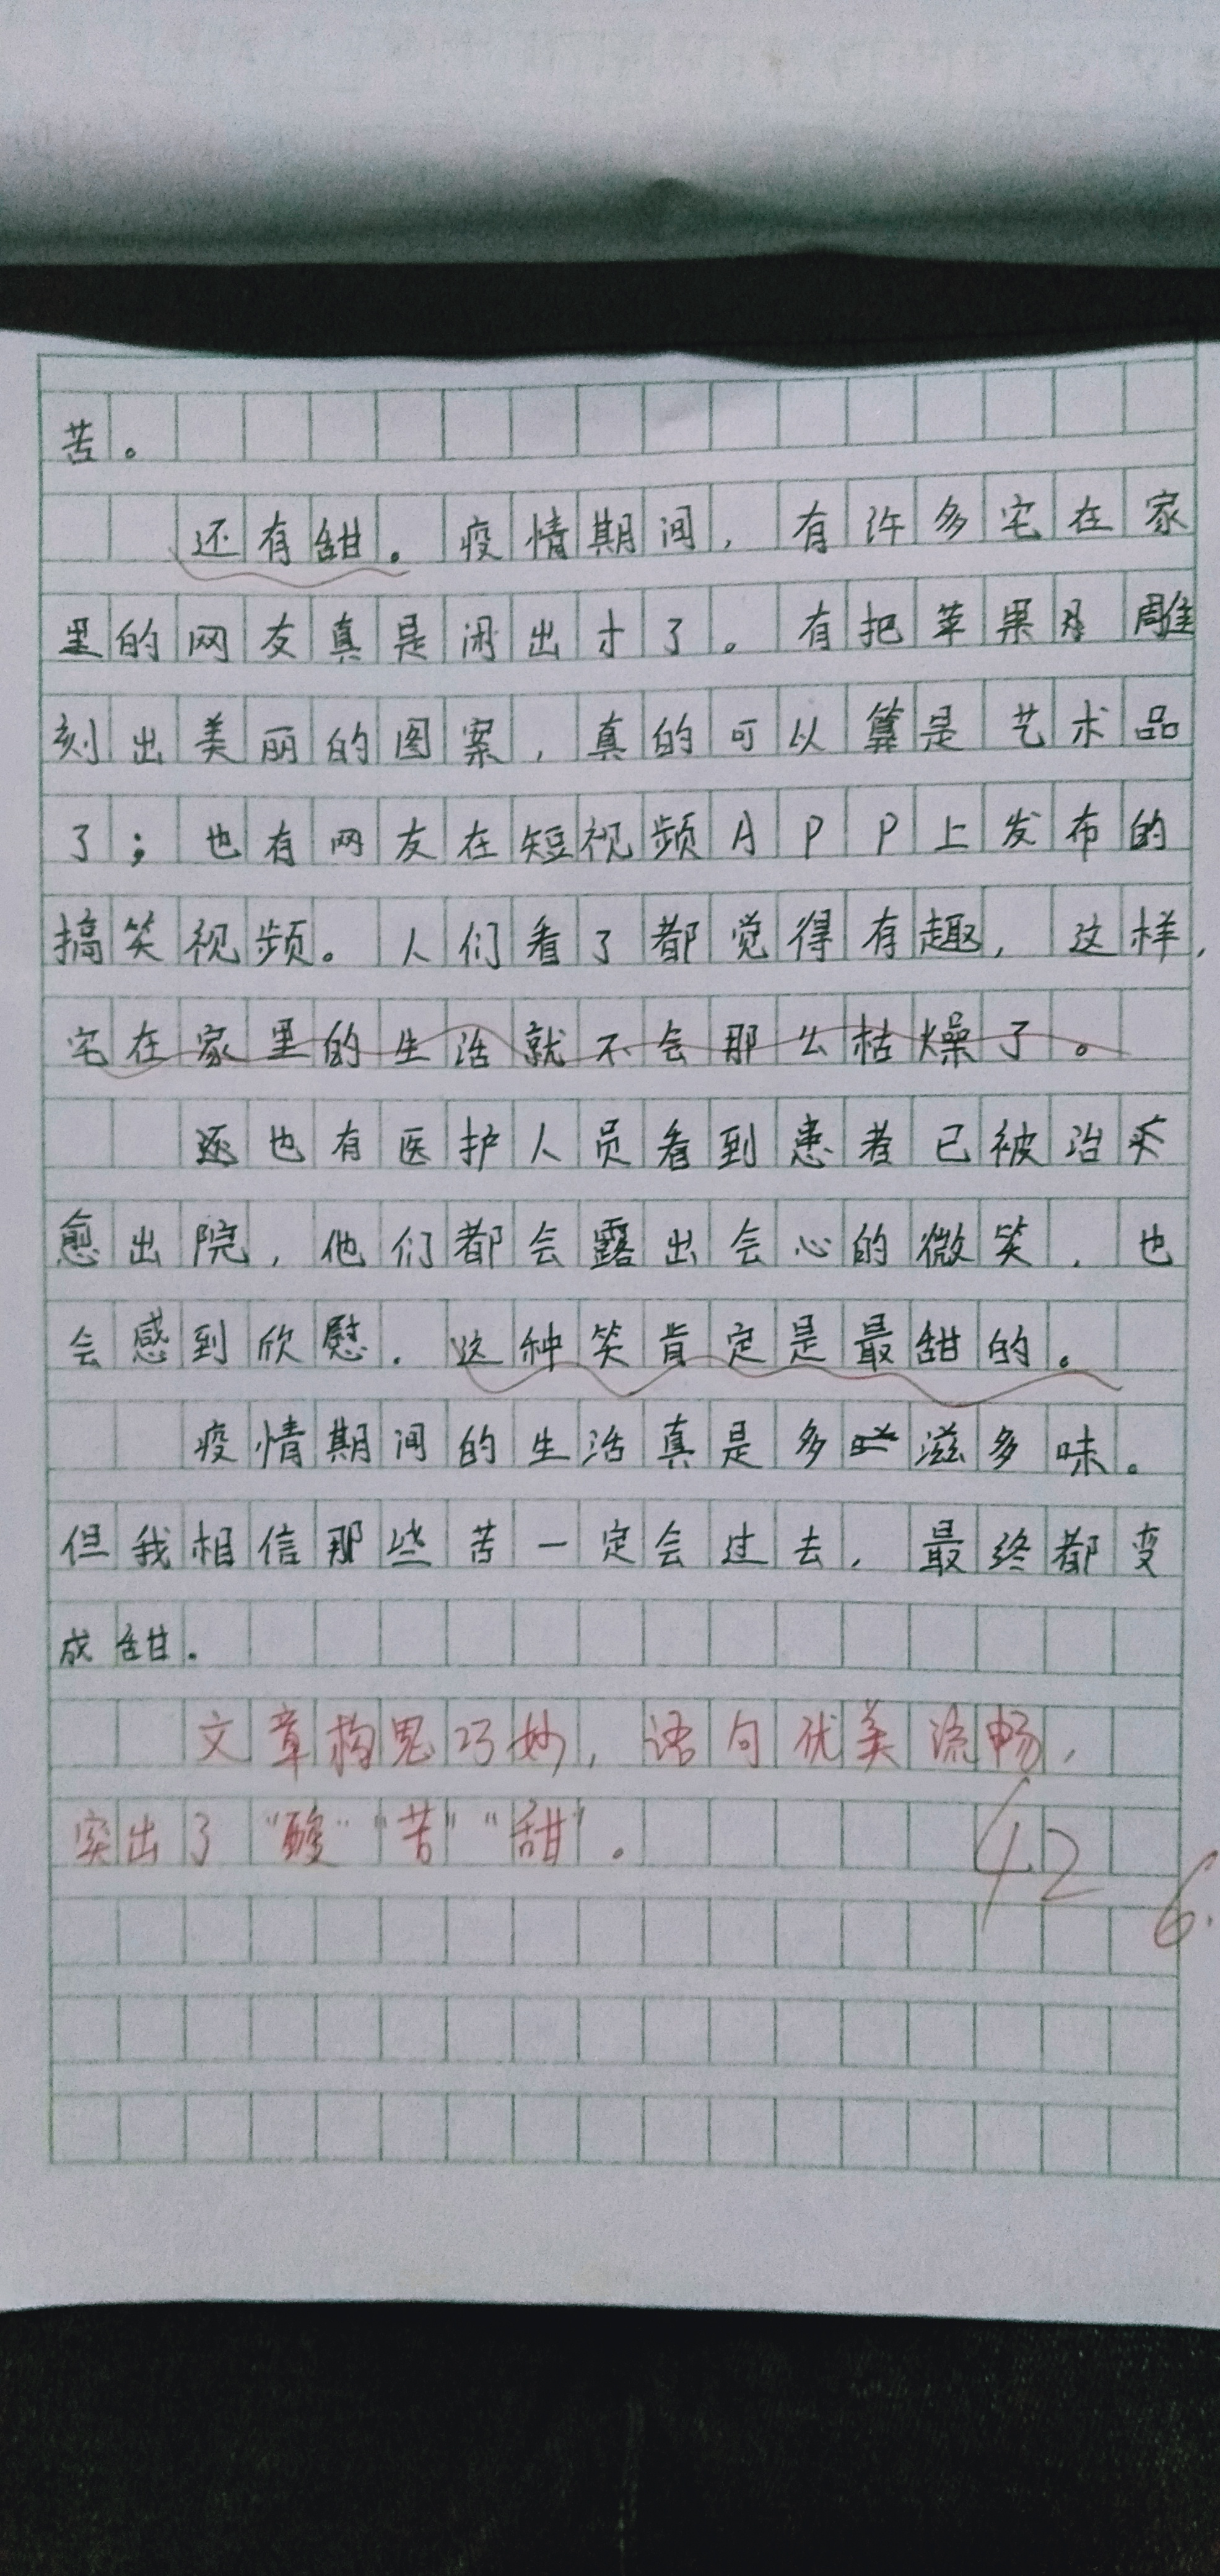 苦。
还有甜。疫情期间,有许多宅在家
里的网友真是闲出才了。有把苹果雕
刻出美丽的图案,真的可以算是艺术品
了;也有网友在短视频APP上发布的
搞笑视频。人们看了都觉得有趣,这样,
宅在家里的生活就不会那么枯燥了。
还也有医护人员看到患者已被治
愈出院,他们都会露出会心的微笑,也
会感到欣慰.这种笑肯定是最甜的。
疫情期间的生活真是多滋多味。
但我相信那些苦一定会过去,最终都变
成甜.
文章构思巧妙,语句优美流畅,
突出了“酸”“苦”“甜”。
42
6.